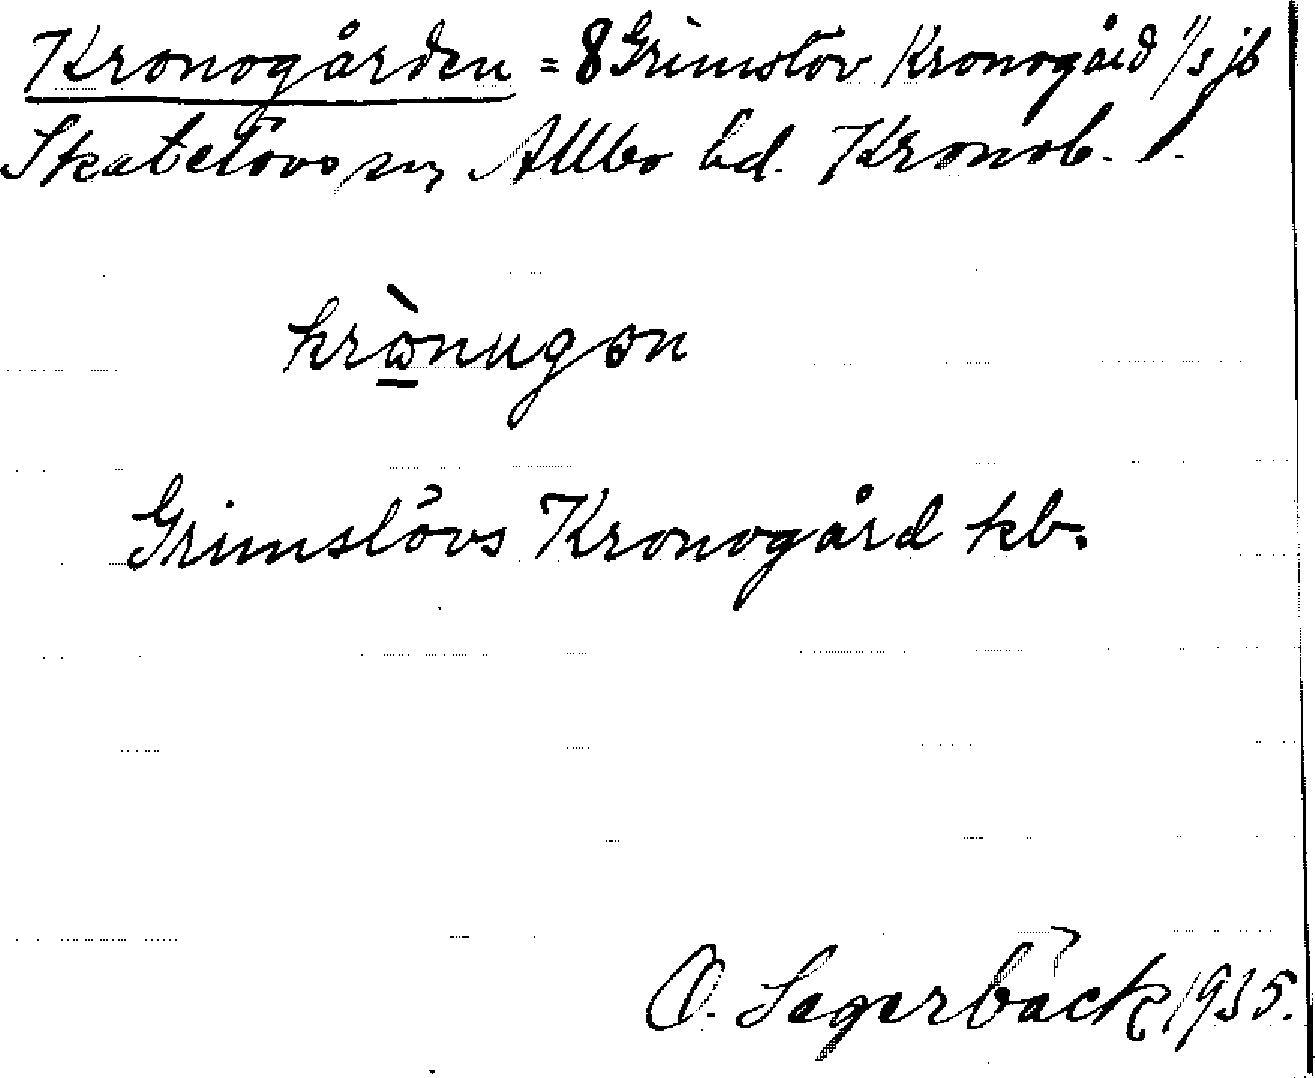 Kronogården = 8 Grimslöv Kronogård 1/1 s jb
Skatelövs sn, Allbo hd. Kronob. l.
krònugən
Grimslövs Kronogård kb.
O. Segerbäck 1935.